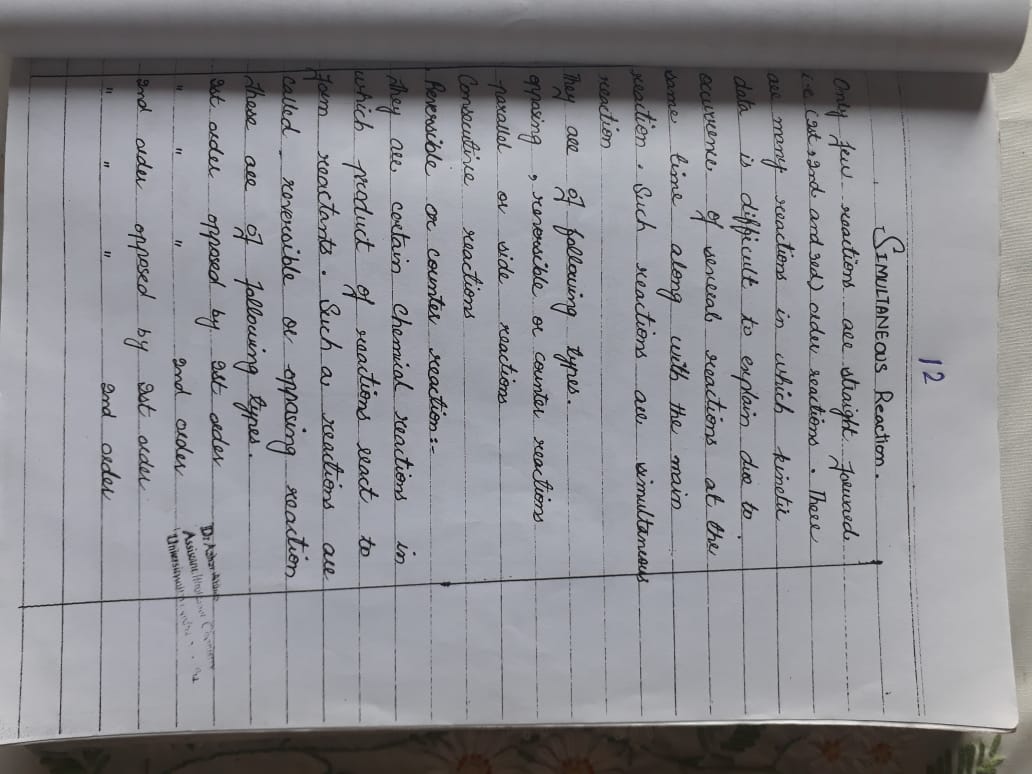 12
SIMULTANEOUS REACTION.
Only few reactions are straight forward
i-e (1st, 2nd and 3rd) order reactions. There
are many reactions in which kinetic
data is difficult to explain due to
occurrence of several reactions at the
same time along with the main
reaction. Such reactions are simultaneous
reaction
They are of following types.
opposing, reversible or counter reactions
-parallel or side reactions
Consecutive reactions
Reversible or counter reaction:-
They are certain Chemical reactions in
which product of reactions react to
Form reactants. Such a reactions are
called reversible or opposing reaction
These are of following types.
1st order opposed by 1st order
" " " 2nd order
2nd order opposed by 1st order
" " " 2nd order